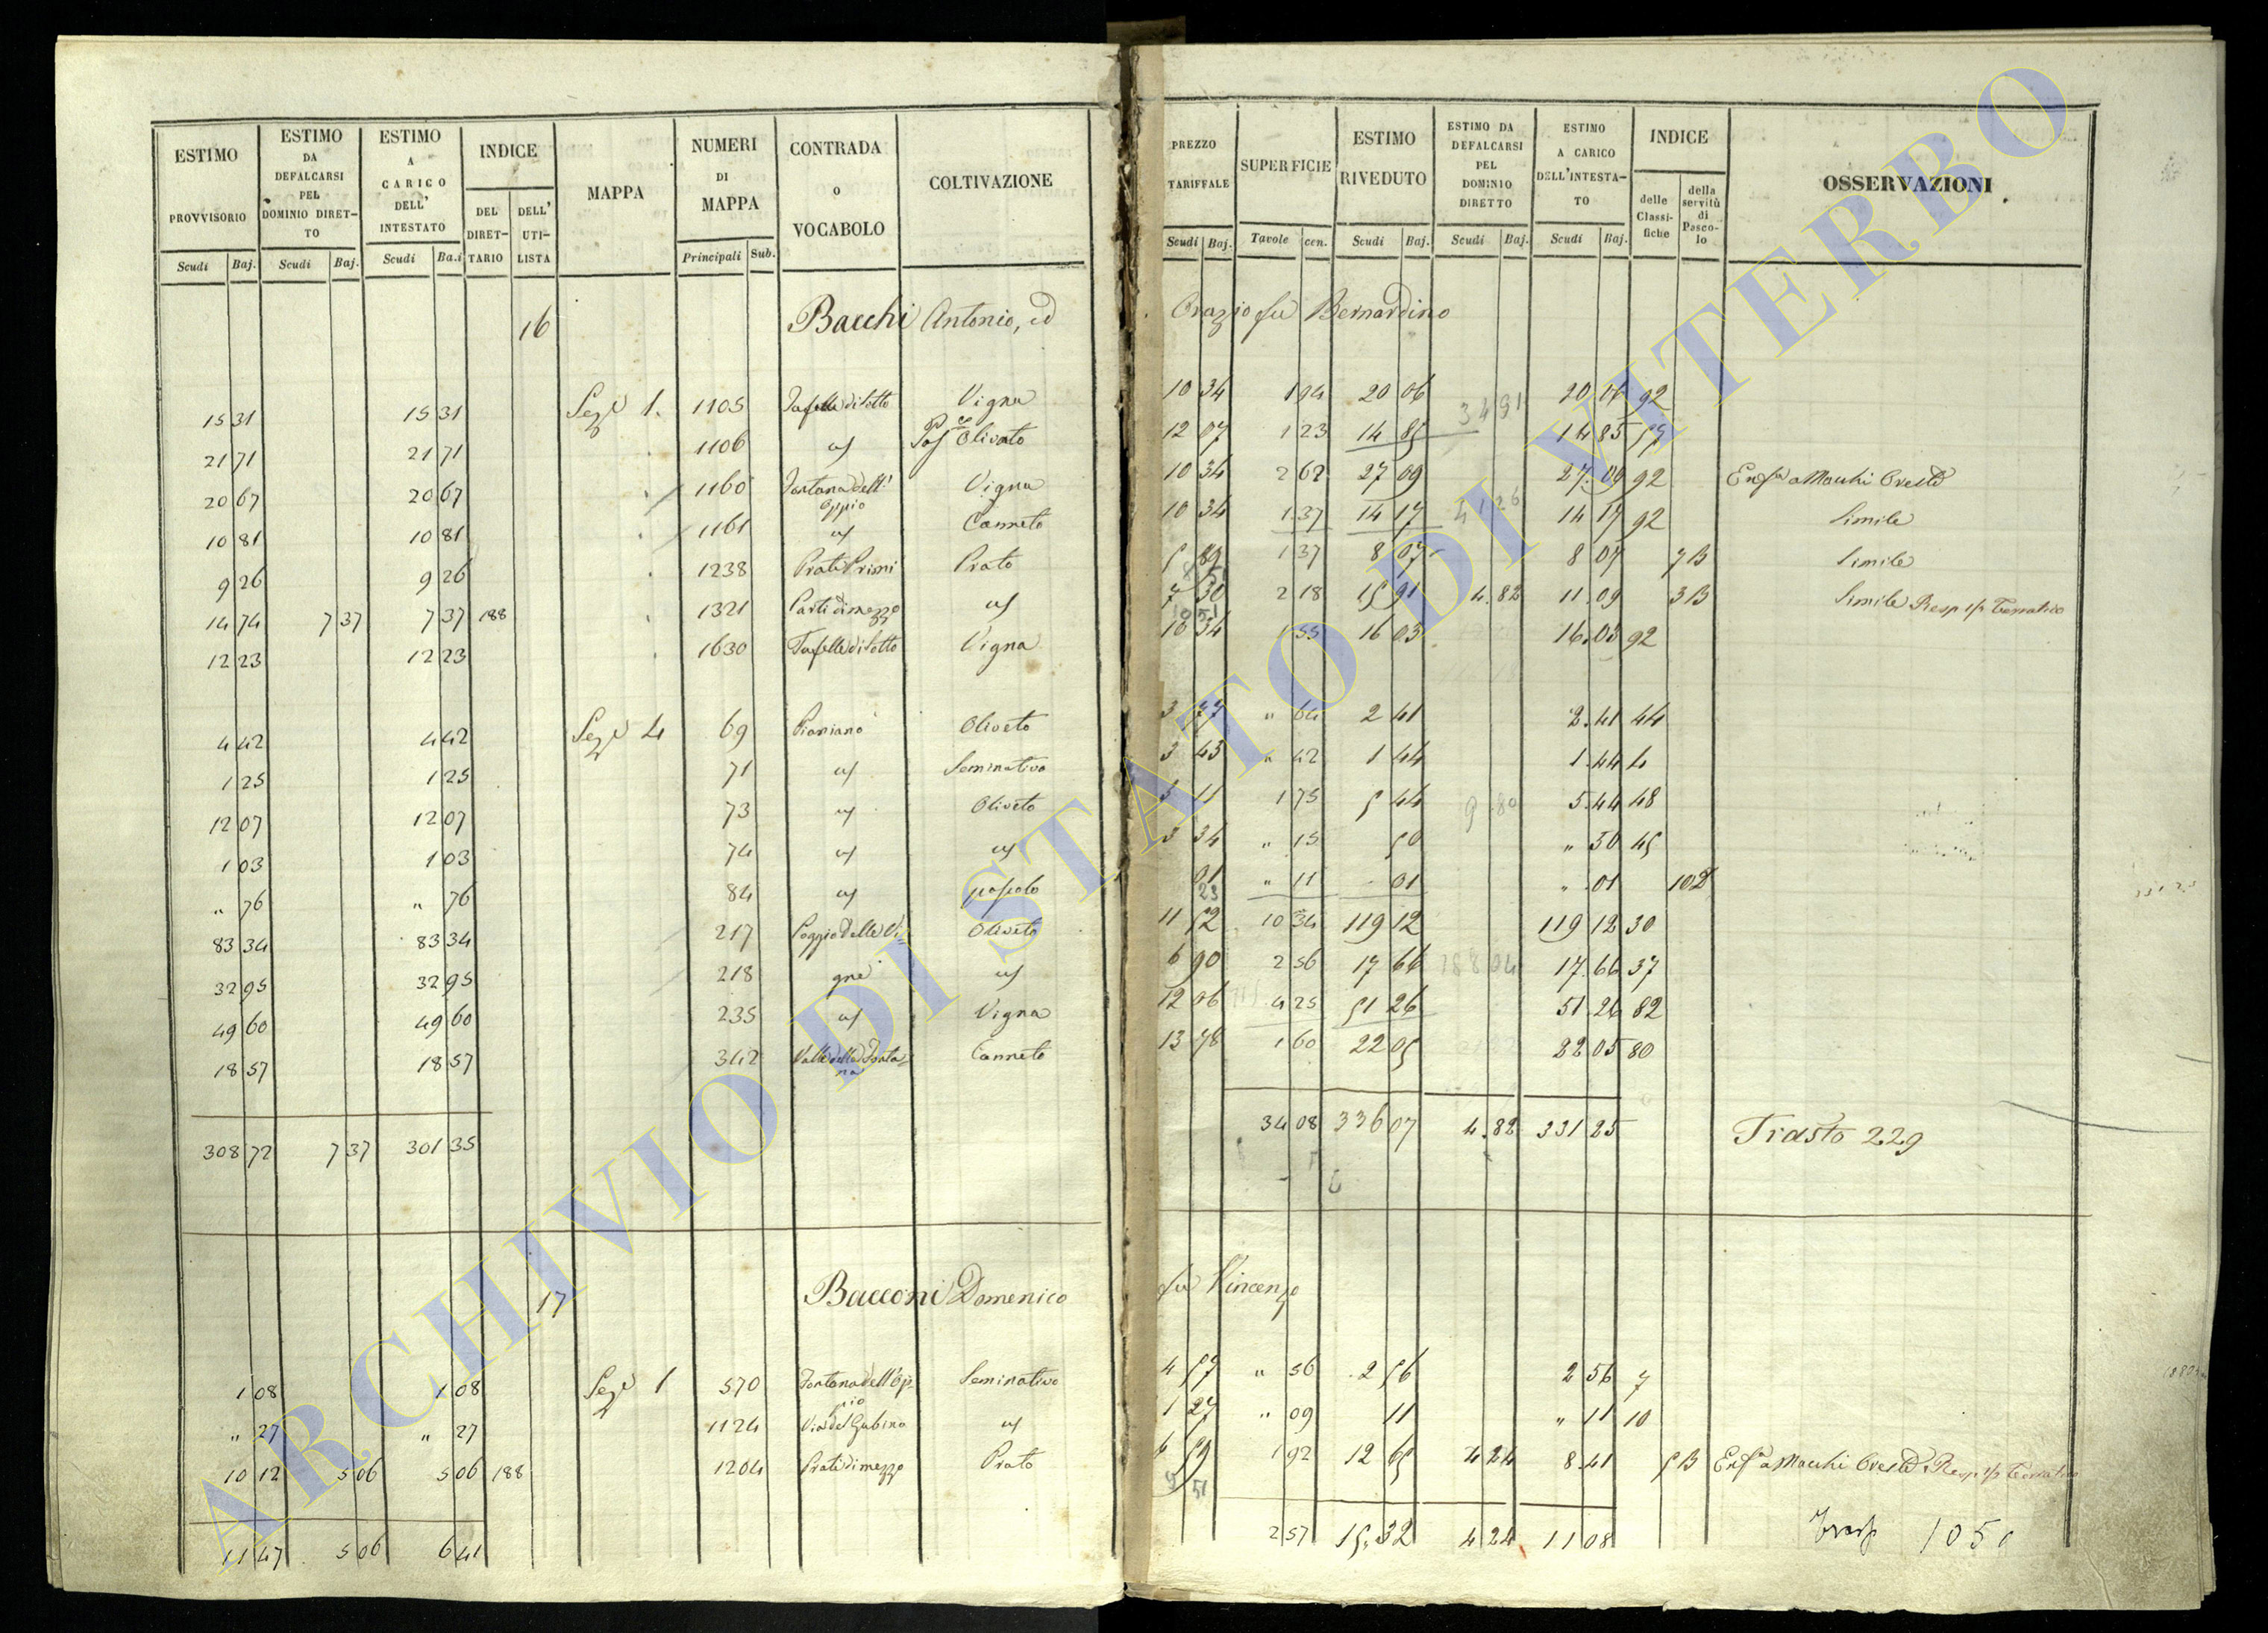 ESTIMO PROVVISORIO Scudi Baj.
ESTIMO DA DEFALCARSI PEL DOMINIO DIRET-TO Scudi Baj.
ESTIMO A CARICO DELL' INTESTATO Scudi Ba.i
INDICE DEL DIRET-TARIO DELL' UTI-LISTA
MAPPA
NUMERI DI MAPPA Principali Sub.
CONTRADA o VOCABOLO
COLTIVAZIONE
PREZZO TARIFFALE Scudi Baj.
SUPERFICIE Tavole cen.
ESTIMO RIVEDUTO Scudi Baj.
ESTIMO DA DEFALCARSI PEL DOMINIO DIRETTO Scudi Baj.
ESTIMO A CARICO DELL'INTESTA-TO Scudi Baj.
INDICE delle Classi-fiche della servitù di Pasco-lo
OSSERVAZIONI
16 Bacchi Antonio, ed Orazio fu Bernardino
15 31 15 31 Sez.e 1. 1105 Vigna 10 34 1 94 20 06 20 06 92
21 71 21 71 1106 Olivato 12 07 1 23 14 85 14 85 57
34 91
20 67 20 67 1160 Fontana dell' Oppio Vigna 10 34 2 62 27 09 27.09 92 a Macchi Oreste
10 81 10 81 1161 Canneto 10 34 1 37 14 17 14 17 92 Simile
41 26
9 26 9 26 1238 Prati Primi Prato 5 89 1 37 8 07 8 07 7 B Simile
14 74 7 37 7 37 188 1321 Parti di mezzo 7 30 2 18 15 91 4.82 11.09 3 B Simile
12 23 12 23 1630 Vigna 10 34 1 55 16 03 16.03 92
4 42 4 42 Sez.e 4 69 Pianiano Oliveto 3 77 " 64 2 41 2.41 44
1 25 1 25 71 Seminativo 3 43 " 42 1 44 1.44 4
12 07 12 07 73 Oliveto 3 11 1 75 5 44 5.44 48
9 80
1 03 1 03 74 3 34 " 15 50 " 50 45
" 76 " 76 84 01 " 11 01 " 01 10
23
83 34 83 34 217 Poggio delle Vi- Oliveto 11 52 10 34 119 12 119 12 30
32 95 32 95 218 gne 6 90 2 56 17 66 17.66 37
188 04
49 60 49 60 235 Vigna 12 06 4 25 51 26 51.26 82
18 57 18 57 342 Valle della Fonta-na Canneto 13 78 1 60 22 05 22 05 80
308 72 7 37 301 35 34 08 336 07 4.82 331 25 Trasto 229
17 Bacconi Domenico fu Vincenzo
1 08 1 08 Sez.e 1 570 Fontana dell'Op-pio Seminativo 4 57 " 56 2 56 2 56 7
" 27 " 27 1124 Via del Gabino 1 27 " 09 11 " 11 10
10 12 5 06 5 06 188 1204 Prati di mezzo Prato 6 59 1 92 12 65 4 24 8.41 5 B a Macchi Oreste
5 51
11 47 5 06 6 41 2 57 15.32 4 24 11 08
ARCHIVIO DI STATO DI VITERBO